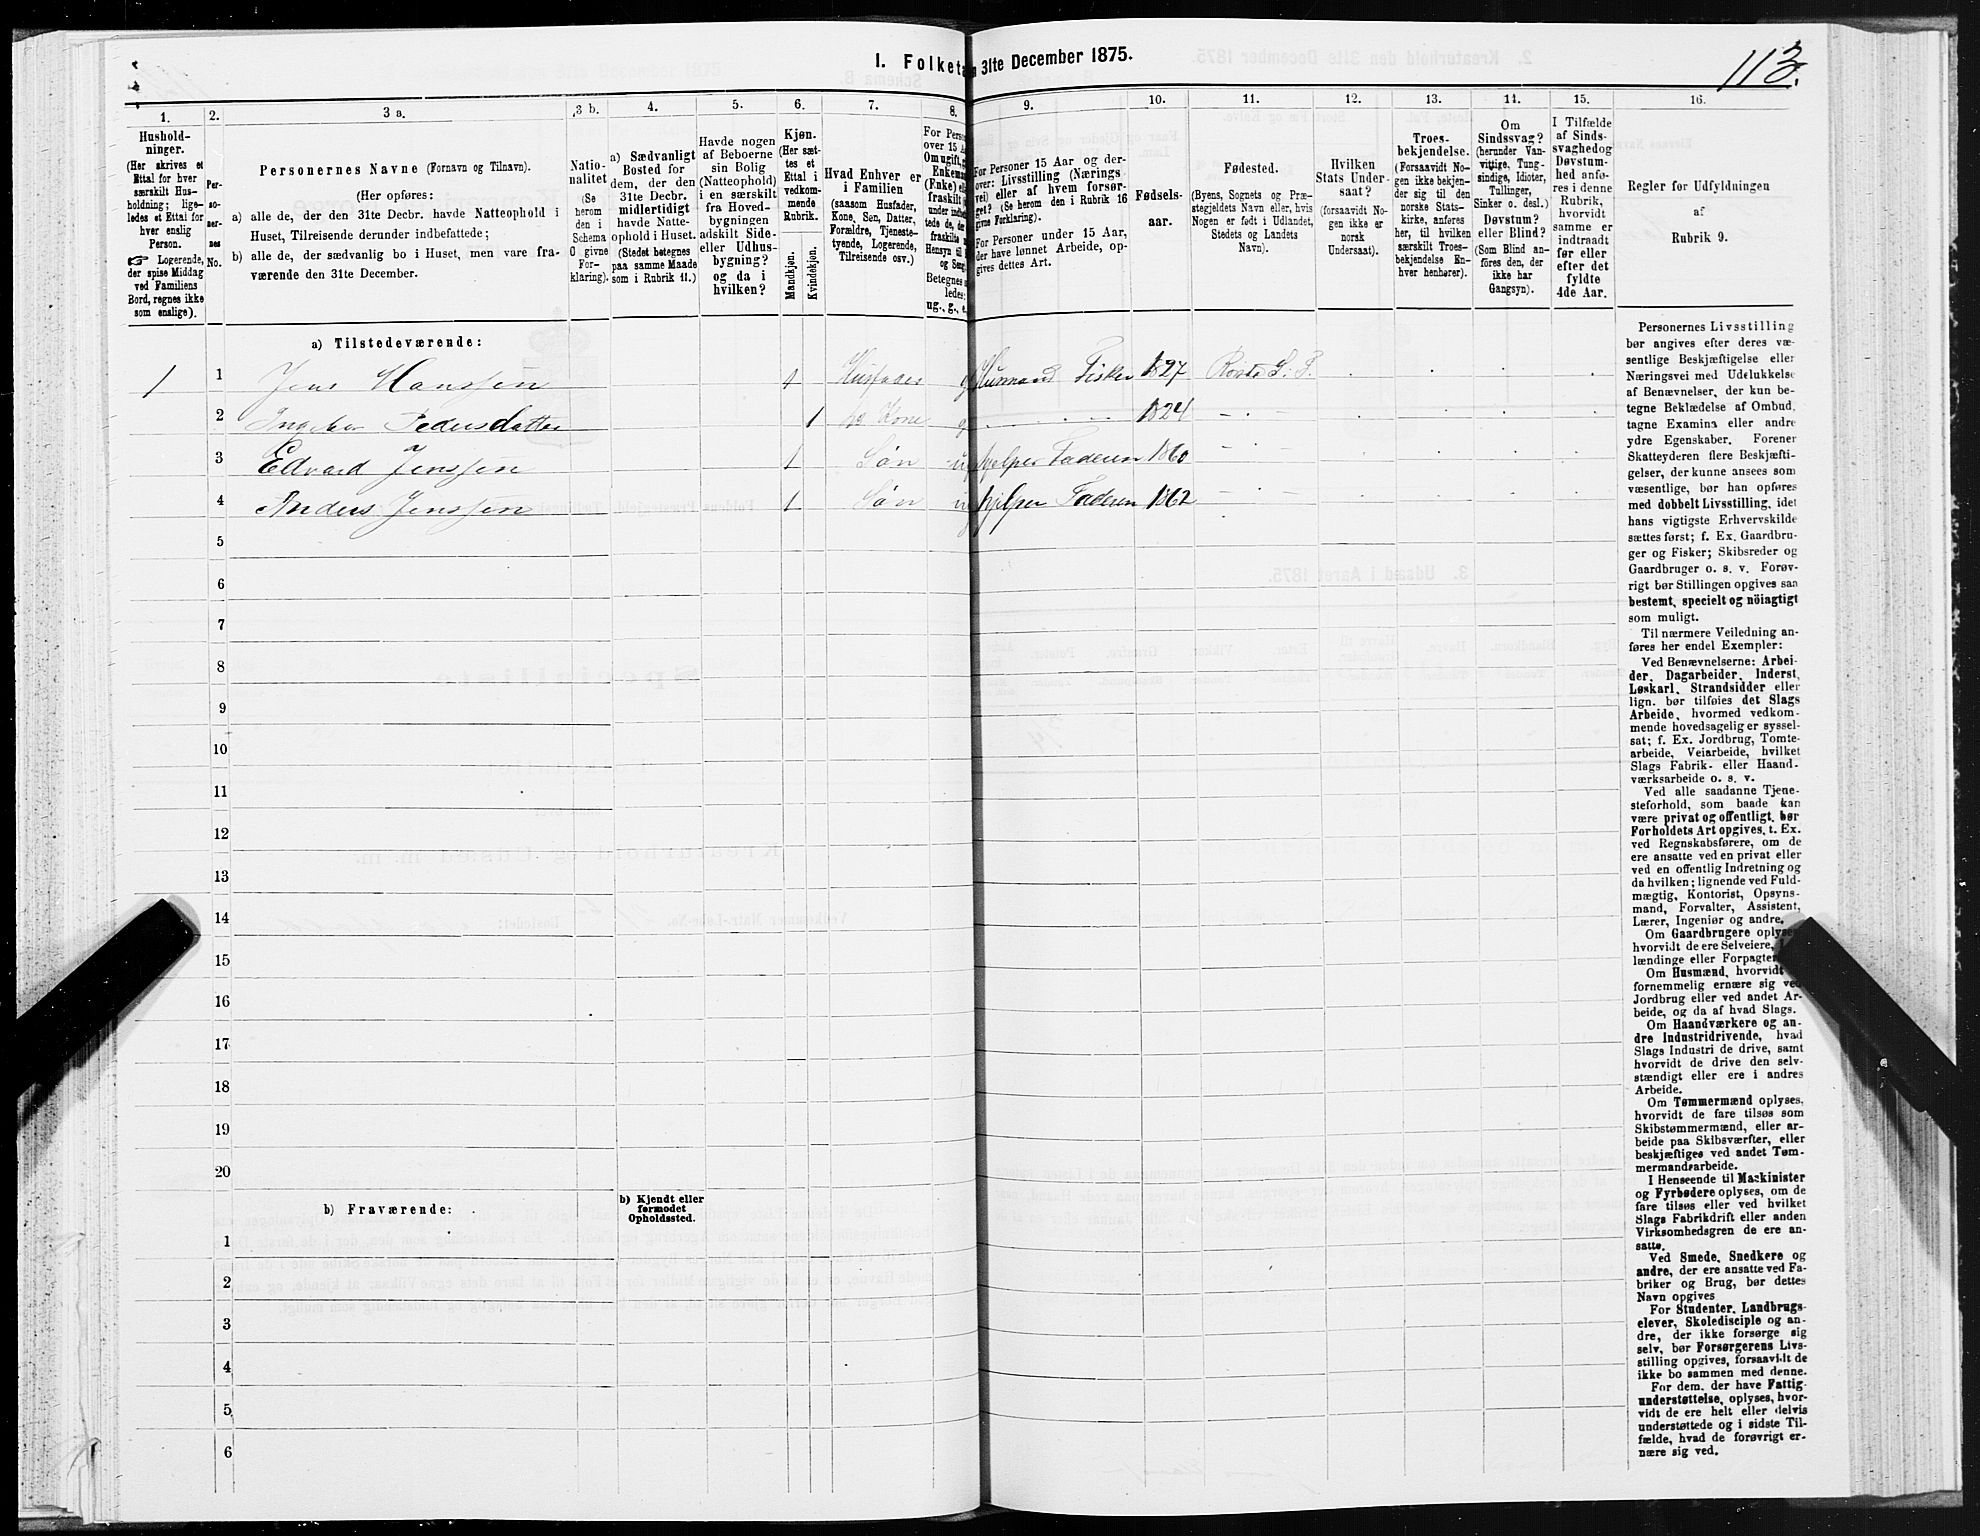 I. Folketa
n 31te December 1875.
113.
1.
2.
3 a.
3 b.
4.
5.
6.
7.
8.
9.
10.
11.
12.
13.
14.
15.
16.
Hushold-
ninger.
(Her skrives et
Ettal for hver
særskilt Hus-
holdning; lige-
ledes et Ettal for
hver enslig
Person.
☞ Logerende,
der spise Middag
ved Familiens
Bord, regnes ikke
som enslige).
Per-
so-
ner-
nes
No.
Personernes Navne (Fornavn og Tilnavn).
(Her opføres:
a) alle de, der den 31te Decbr. havde Natteophold i
Huset, Tilreisende derunder indbefattede;
b) alle de, der sædvanlig bo i Huset, men vare fra-
værende den 31te December.
Natio-
nalitet
(Se
herom
den i
Schema
O givne
For-
klaring).
a) Sædvanligt
Bosted for
dem, der den
31te Decbr.
midlertidigt
havde Natte-
ophold i Huset.
(Stedet betegnes
paa samme Maade
som i Rubrik 11.)
Havde nogen
af Beboerne
sin Bolig
(Natteophold)
i en særskilt
fra Hoved-
bygningen
adskilt Side-
eller Udhus-
bygning?
og da i
hvilken?
Kjøn.
(Her sæt-
tes et
Ettal i
vedkom-
mende
Rubrik.
Mandkjøn.
Kvindekjøn.
Hvad Enhver er
i Familien
(saasom Husfader,
Kone, Søn, Datter,
Forældre, Tjeneste-
tyende, Logerende,
Tilreisende osv.)
For Perso
over 15 A
Om ugift,
Enkema
(Enke) el
fraskilt
under indbe
tede de, de
fraskilte
Hensyn til
og Seng
Betegnes
ledes:
ug., g., e.
For Personer 15 Aar og der-
over: Livsstilling (Nærings
vei) eller af hvem forsør-
get? (Se herom den i Rubrik 16
givne Forklaring).
For Personer under 15 Aar,
der have lønnet Arbeide, op-
gives dettes Art.
Fødsels-
aar.
Fødested.
(Byens, Sognets og Præ-
stegjeldets Navn eller, hvis
Nogen er født i Udlandet,
Stedets og Landets
Navn).
Hvilken
Stats Under-
saat?
(forsaavidt No-
gen ikke er
norsk
Undersaat).
Troes-
bekjendelse.
(Forsaavidt No-
gen ikke bekjen-
der sig til den
norske Stats-
kirke, anføres
her, til hvilken
særskilt Troes-
bekjendelse En-
hver henhører).
Om
Sindssvag?
(herunder Van-
vittige, Tung-
sindige, Idioter,
Tullinger,
Sinker o. desl.)
Døvstum?
eller Blind?
(Som Blind an-
føres den, der
ikke har
Gangsyn).
I Tilfælde
af Sinds-
svaghed og
Døvstum-
hed anfø-
res i denne
Rubrik,
hvorvidt
samme er
indtraadt
før eller
efter det
fyldte
4de Aar.
Regler for Udfyldningen
af
Rubrik 9.
a) Tilstedeværende:
1 1 Jens Hanssen 1 Husfader g Husmand Fisker 1827 Røst S. P.
2 Ingebor Pedersdatter 1 hg Kone g 1824
3 Edvard Jenssen 1 Søn ug hjelper Faderen 1860
4 Anders Jenssen 1 Søn ug hjelper Faderen 1862
5
6
7
8
9
10
11
12
13
14
15
16
17
18
19
20
b) Fraværende:
b) Kjendt eller
formodet
Opholdssted.
1
2
3
4
5
6
Personernes Livsstilling
bør angives efter deres væ-
sentlige Beskjæftigelse eller
Næringsvei med Udelukkelse
af Benævnelser, der kun be-
tegne Beklædelse af Ombud,
tagne Examina eller andre
ydre Egenskaber. Forener
Skatteyderen flere Beskjæfti-
gelser, der kunne ansees som
væsentlige, bør han opføres
med dobbelt Livsstilling, idet
hans vigtigste Erhvervskilde
sættes først; f. Ex. Gaardbru-
ger og Fisker; Skibsreder og
Gaardbruger o. s. v. Forøv-
rigt bør Stillingen opgives saa
bestemt, specielt og nöiagtigt
som muligt.
Til nærmere Veiledning an-
føres her endel Exempler:
Ved Benævnelserne: Arbei-
der, Dagarbeider, Inderst,
Løskarl, Strandsidder eller
lign. bør tilføies det Slags
Arbeide, hvormed vedkom-
mende hovedsagelig er syssel-
sat; f. Ex. Jordbrug, Tomte-
arbeide, Veiarbeide, hvilket
Slags Fabrik- eller Haand-
værksarbeide o. s. v.
Ved alle saadanne Tjene-
steforhold, som baade kan
være privat og offentligt, bør
Forholdets Art opgives, t. Ex.
ved Regnskabsførere, om de
ere ansatte ved en privat eller
ved en offentlig Indretning og
da hvilken; lignende ved Fuld-
mægtig, Kontorist, Opsyns-
mand, Forvalter, Assistent,
Lærer, Ingeniør og andre.
Om Gaardbrugere oplyses
hvorvidt de ere Selveiere,
lændinge eller Forpagte
Om Husmænd, hvorvidt
fornemmelig ernære sig ved
Jordbrug eller ved andet Ar-
beide, og da af hvad Slags.
Om Haandværkere og an-
dre Industridrivende, hvad
Slags Industri de drive, samt
hvorvidt de drive den selv-
stændigt eller ere i andres
Arbeide.
Om Tømmermænd oplyses,
hvorvidt de fare tilsøs som
Skibstømmermænd, eller ar-
beide paa Skibsværfter, eller
beskjæftiges ved andet Tøm-
mermandsarbeide.
I Henseende til Maskinister
og Fyrbødere oplyses, om de
fare tilsøs eller ved hvilket
Slags Fabrikdrift eller anden
Virksomhedsgren de ere an-
satte.
Ved Smede, Snedkere og
andre, der ere ansatte ved Fa-
briker og Brug, bør dettes
Navn opgives
For Studenter, Landbrugs-
elever, Skoledisciple og an-
dre, der ikke forsørge sig
selv, bør Forsørgerens Livs-
stilling opgives, forsaavidt de
ikke bo sammen med denne.
For dem, der have Fattig-
understøttelse, oplyses, hvor-
vidt de ere helt eller delvis
understøttede og i sidste Til-
fælde, hvad de forøvrigt er-
nære sig ved.